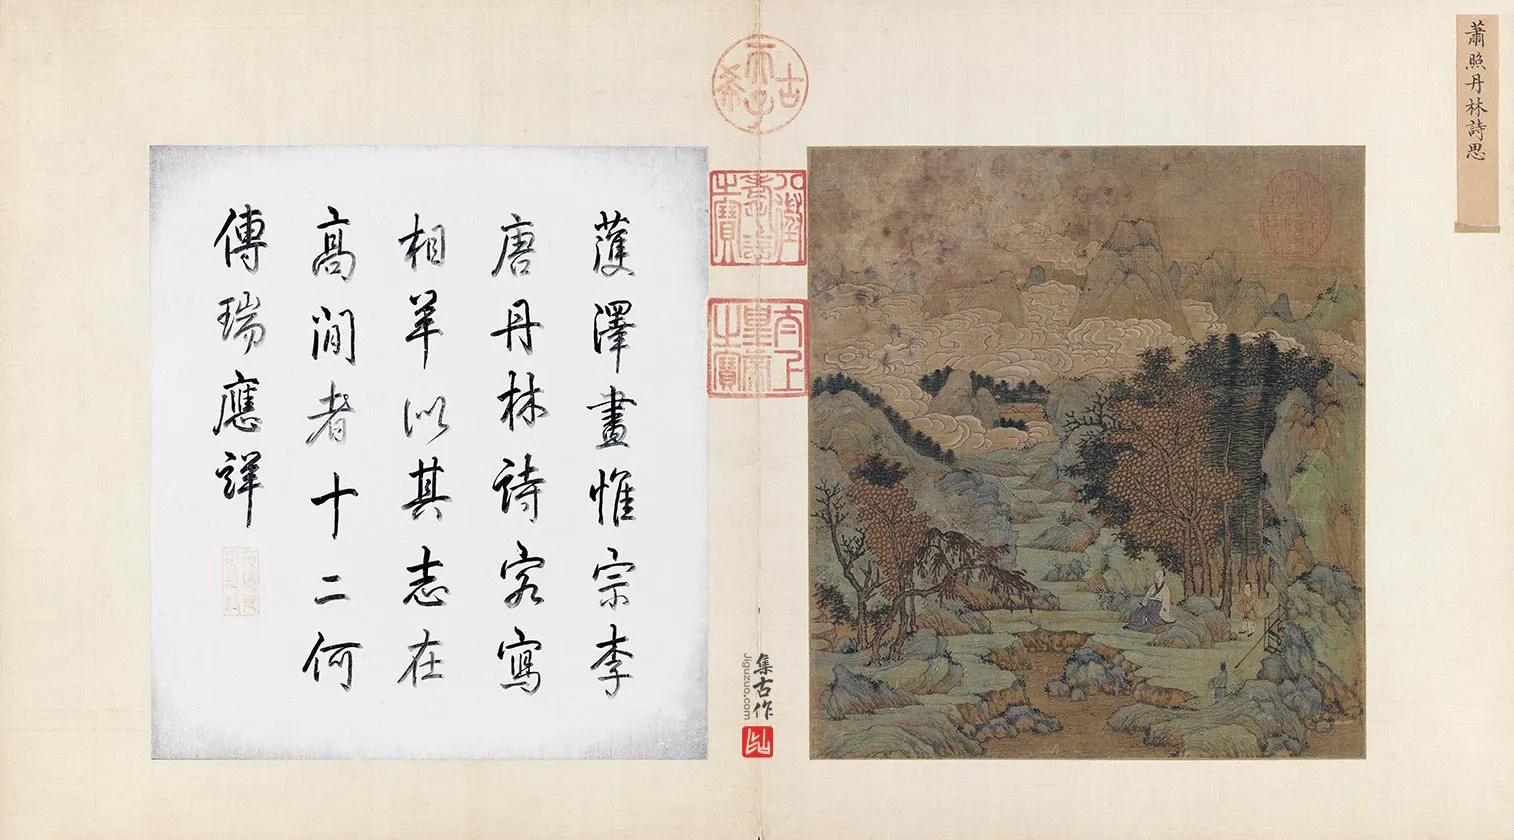 蕭照丹林詩思
古希天子
八徵耄念之寶
太上皇帝之寶
濩澤畫惟宗李
唐丹林詩客寫
相羊以其志在
高閒者十二何
傳瑞應祥
集古作
Jiguzuo.com